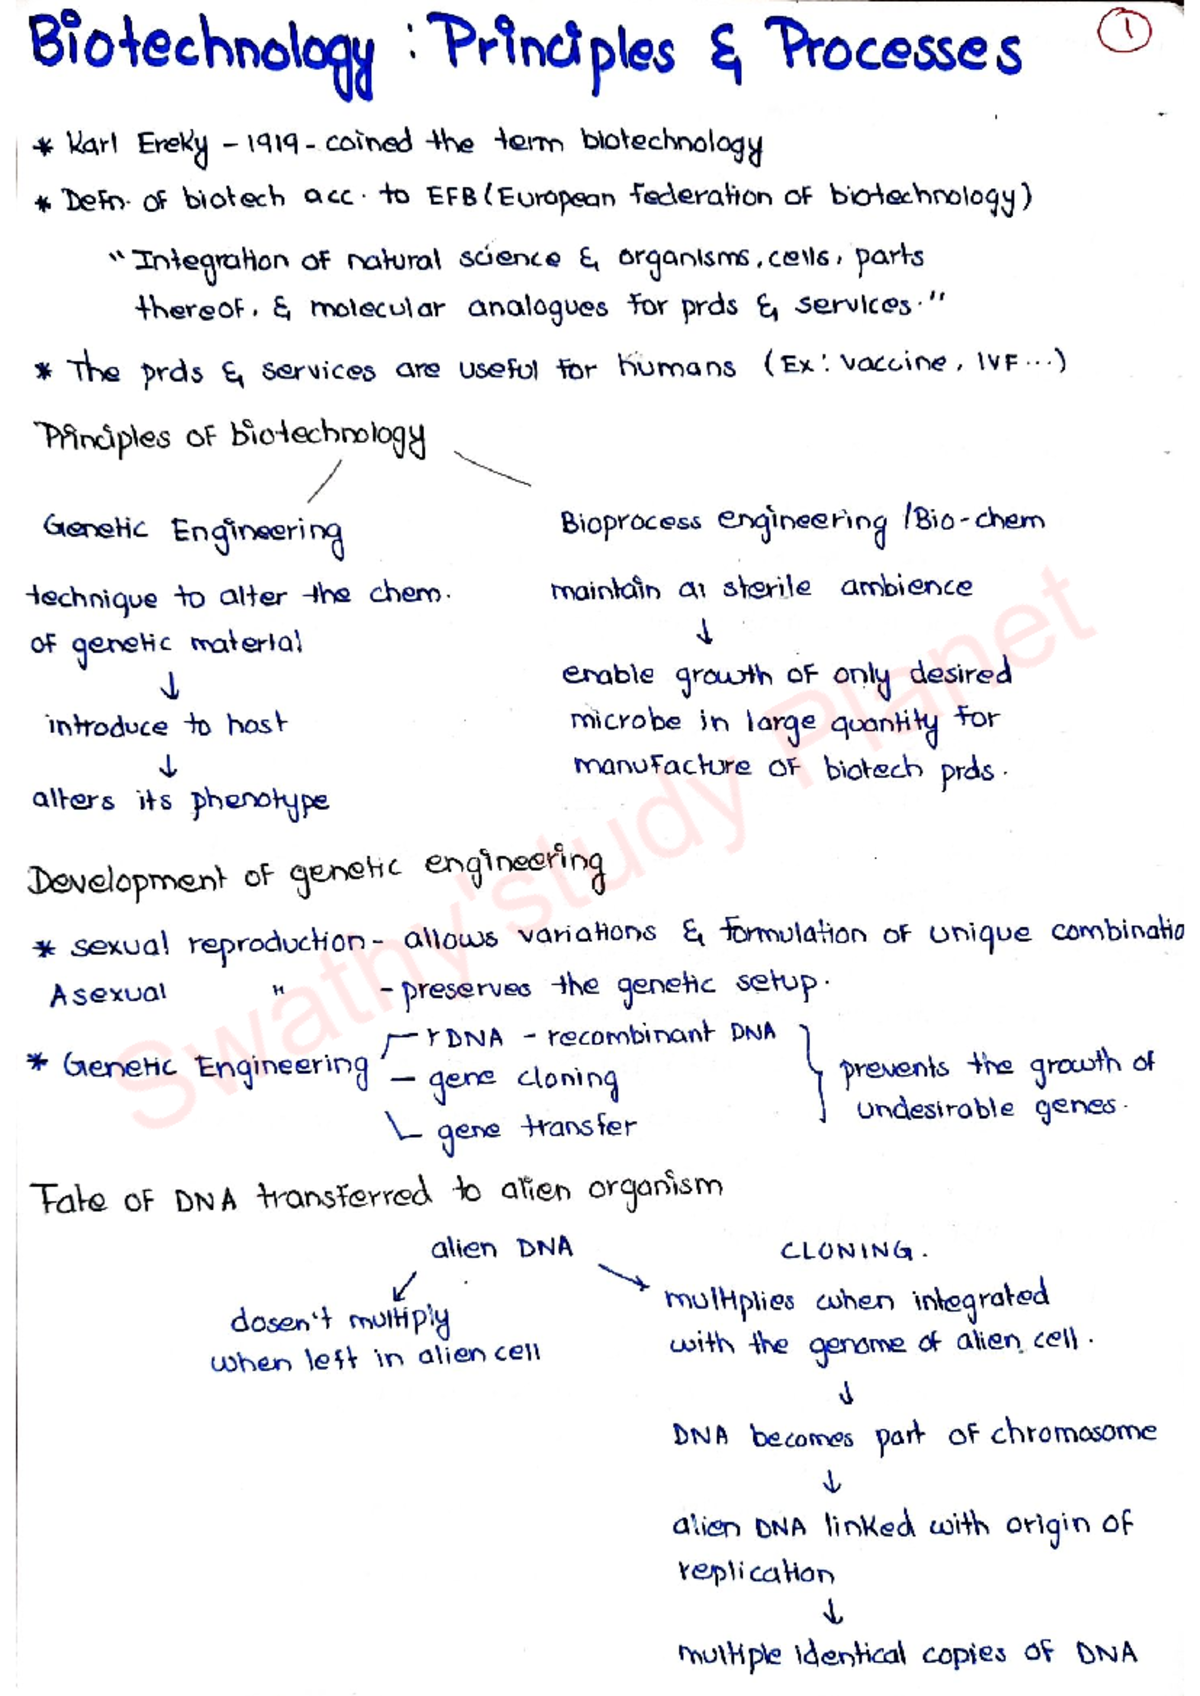 Biotechnology : Principles & Processes
1
* Karl Ereky - 1919 - coined the term biotechnology
* Defn. of biotech acc. to EFB (European federation of biotechnology)
"Integration of natural science & organisms, cells, parts
thereof, & molecular analogues for prds & services."
* The prds & services are useful for humans (Ex: vaccine, IVF...)
Principles of biotechnology
Genetic Engineering
technique to alter the chem.
of genetic material
↓
introduce to host
↓
alters its phenotype
Bioprocess engineering /Bio-chem
maintain a sterile ambience
↓
enable growth of only desired
microbe in large quantity for
manufacture of biotech prds.
Development of genetic engineering
* sexual reproduction - allows variations & formulation of unique combinatio
Asexual " - preserves the genetic setup.
* Genetic Engineering
rDNA - recombinant DNA
- gene cloning
gene transfer
prevents the growth of
undesirable genes.
Fate of DNA transferred to alien organism
alien DNA
dosen't multiply
when left in alien cell
CLONING.
multiplies when integrated
with the genome of alien cell.
↓
DNA becomes part of chromosome
↓
alien DNA linked with origin of
replication
↓
multiple identical copies of DNA
Swathy'study Planet